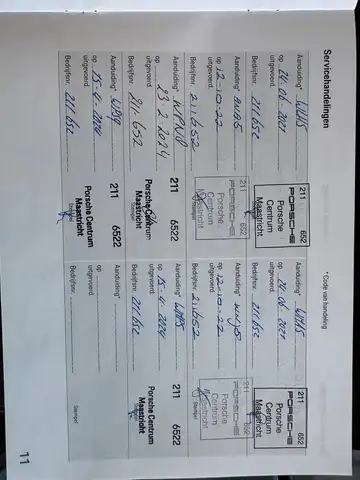 Servicehandelingen
* Code van handeling
Aanduiding* WHA5
op 24-06-2021
uitgevoerd.
Bedrijfsnr. 211.652
211 652
PORSCHE
Porsche
Centrum
Maastricht
Aanduiding* WHA5
op 24-06-2021
uitgevoerd.
Bedrijfsnr. 211.652
211 652
PORSCHE
Porsche
Centrum
Maastricht
Aanduiding*
op 12-10-22
uitgevoerd.
Bedrijfsnr. 211.652
211 652
PORSCHE
Porsche
Centrum
Maastricht
Aanduiding*
op 12-10-22
uitgevoerd.
Bedrijfsnr. 211.652
211 652
PORSCHE
Porsche
Centrum
Maastricht
Aanduiding*
op 23-2-2024
uitgevoerd.
Bedrijfsnr. 211.652
211 6522
Porsche Centrum
Maastricht
Stempel
Aanduiding*
op 15-4-2024
uitgevoerd.
Bedrijfsnr. 211.652
211 6522
Porsche Centrum
Maastricht
Stempel
Aanduiding*
op 15-4-2024
uitgevoerd.
Bedrijfsnr. 211.652
211 6522
Porsche Centrum
Maastricht
Stempel
Aanduiding*
op
uitgevoerd.
Bedrijfsnr.
Stempel
11